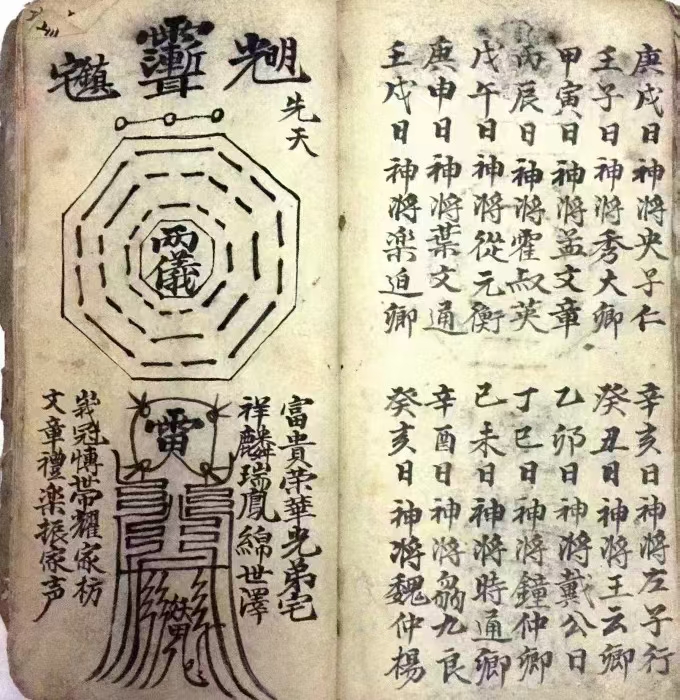 庚戌日神將央子仁
壬子日神將秀大卿
甲寅日神將孟文章
丙辰日神將霍叔英
戊午日神將從元衡
庚申日神將葉文通
壬戌日神將楽迫卿
辛亥日神將左子行
癸丑日神將王云卿
乙卯日神將戴公日
丁巳日神將鐘仲卿
己未日神將時通卿
辛酉日神將翁九良
癸亥日神將魏仲楊
明光
鎮宅
先天
兩儀
雷
富貴荣華光弟宅
祥麟瑞鳳綿世澤
峩冠博帶耀家枋
文章禮楽振家声